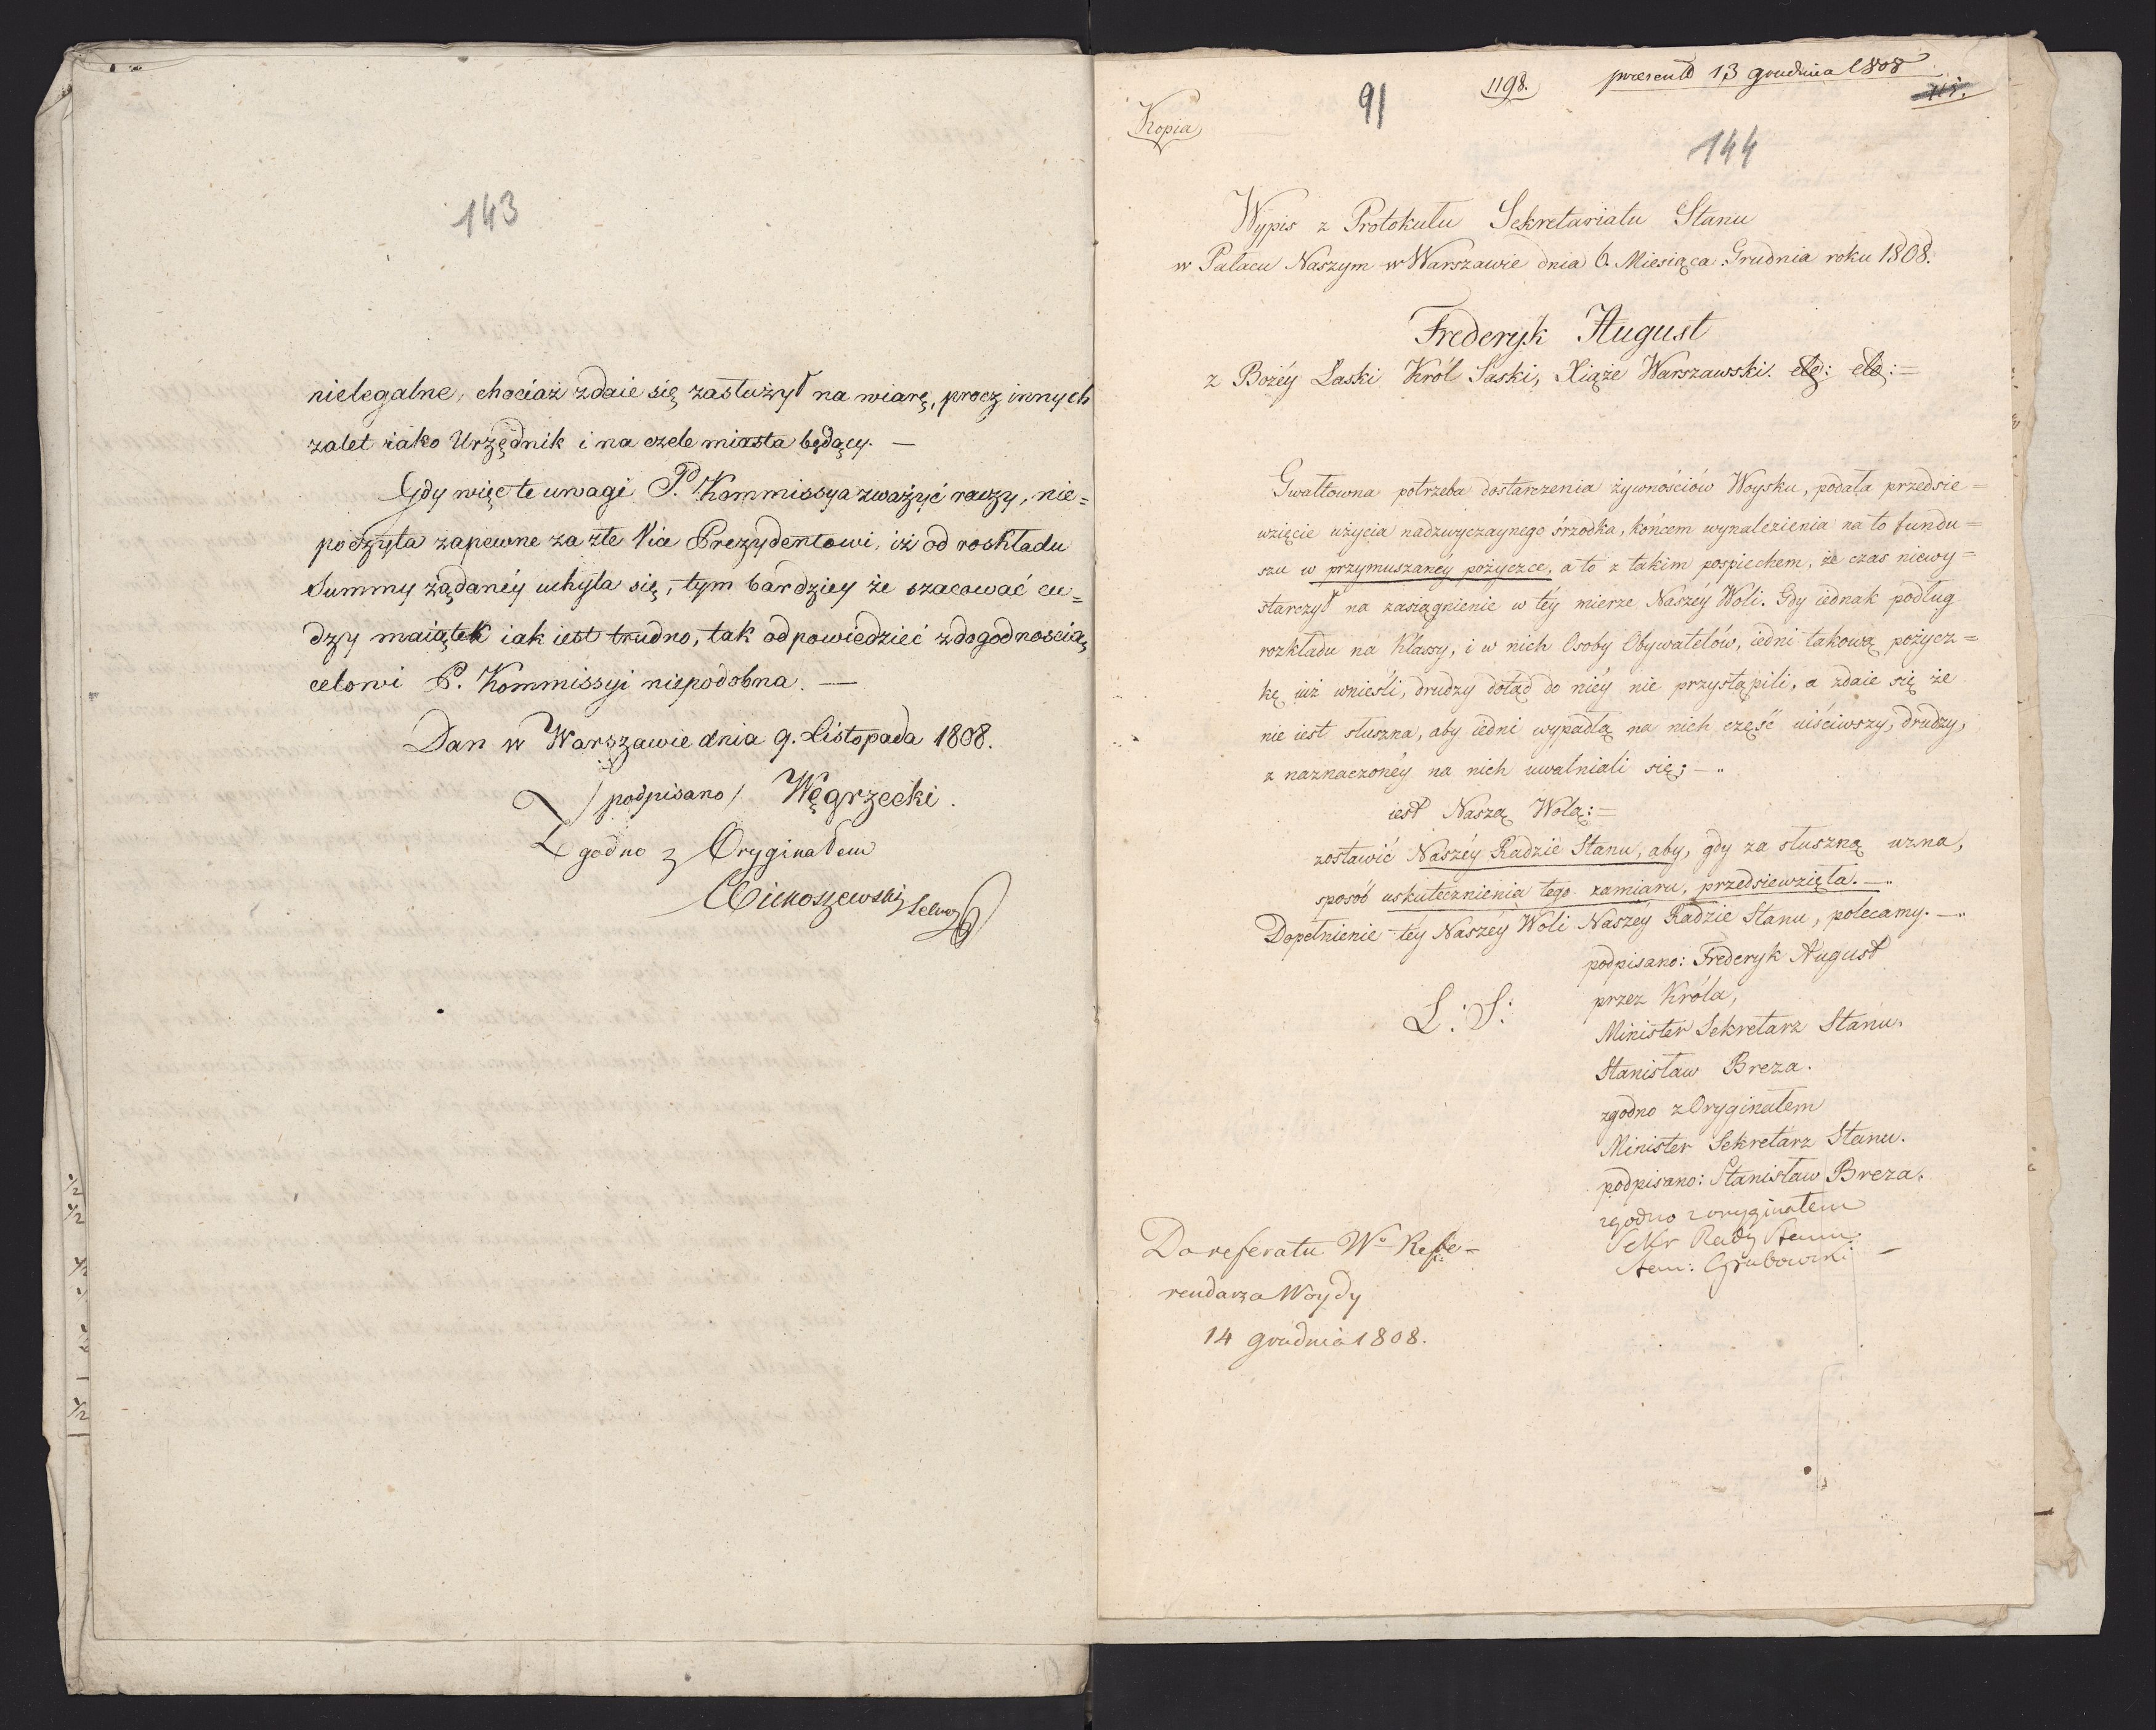 143
nielegalne, chociaż zdaie się zasłużył na wiarę, procz innych
zalet iako Urzędnik i na czele miasta będący. —
Gdy więc te uwagi P. Kommissya zważyć raczy, nie=
poczyta zapewne za złe Vice Prezydentowi, iż od roskładu
Summy żądanéy uchyla się, tym bardziey że szacować cu=
dzy maiątek iak iest trudno, tak odpowiedzieć z dogodnoscią
celowi P. Kommissyi niepodobna. —
Dan w Warszawie dnia 9. Listopada 1808.
/podpisano/ Węgrzecki.
Zgodno z Oryginałem
1/2
1/2
1/2
1/2
Kopia
91
1198.
praesent 13 grudnia 1808
144
Wypis z Protokułu Sekretariatu Stanu
w Pałacu Naszym w Warszawie dnia 6. Miesiąca Grudnia roku 1808.
Frederyk August
z Bożéy Łaski Król Saski, Xiąże Warszawski. etc: etc:=
Gwałtowna potrzeba dostarczenia żywnościów Woysku, podała przedsie=
wzięcie użycia nadzwyczaynego śrzodka, końcem wynalezienia na to fundu=
szu w przymuszaney pożyczce, a to z takim pospiechem, że czas niewy=
starczył na zasiągnienie w téy mierze Naszey Woli. Gdy iednak podług
rozkładu na Klassy, i w nich Osoby Obywatelów, iedni takową pożycz=
kę iuż wnieśli, drudzy dotąd do niéy nie przystąpili, a zdaie się że
nie iest słuszna, aby iedni wypadłą na nich część uiściwszy, drudzy,
z naznaczonéy na nich uwalniali się; —..
iest Naszą Wolą:=
zostawić Naszéy Radzie Stanu, aby, gdy za słuszną uzna,
sposób uskutecznienia tego zamiaru, przedsiewzięła. —..
Dopełnienie téy Naszéy Woli Naszéy Radzie Stanu, polecamy. —..
podpisano: Frederyk August
L: S:
przez Króla,
Minister Sekretarz Stanu.
Stanisław Breza.
zgodno z Oryginałem
Minister Sekretarz Stanu.
podpisano: Stanisław Breza.
zgodno z oryginałem
Sekr Rady Stanu
Grabowski —
Do referatu Wo Refe-
rendarza Woydy
14 grudnia 1808.